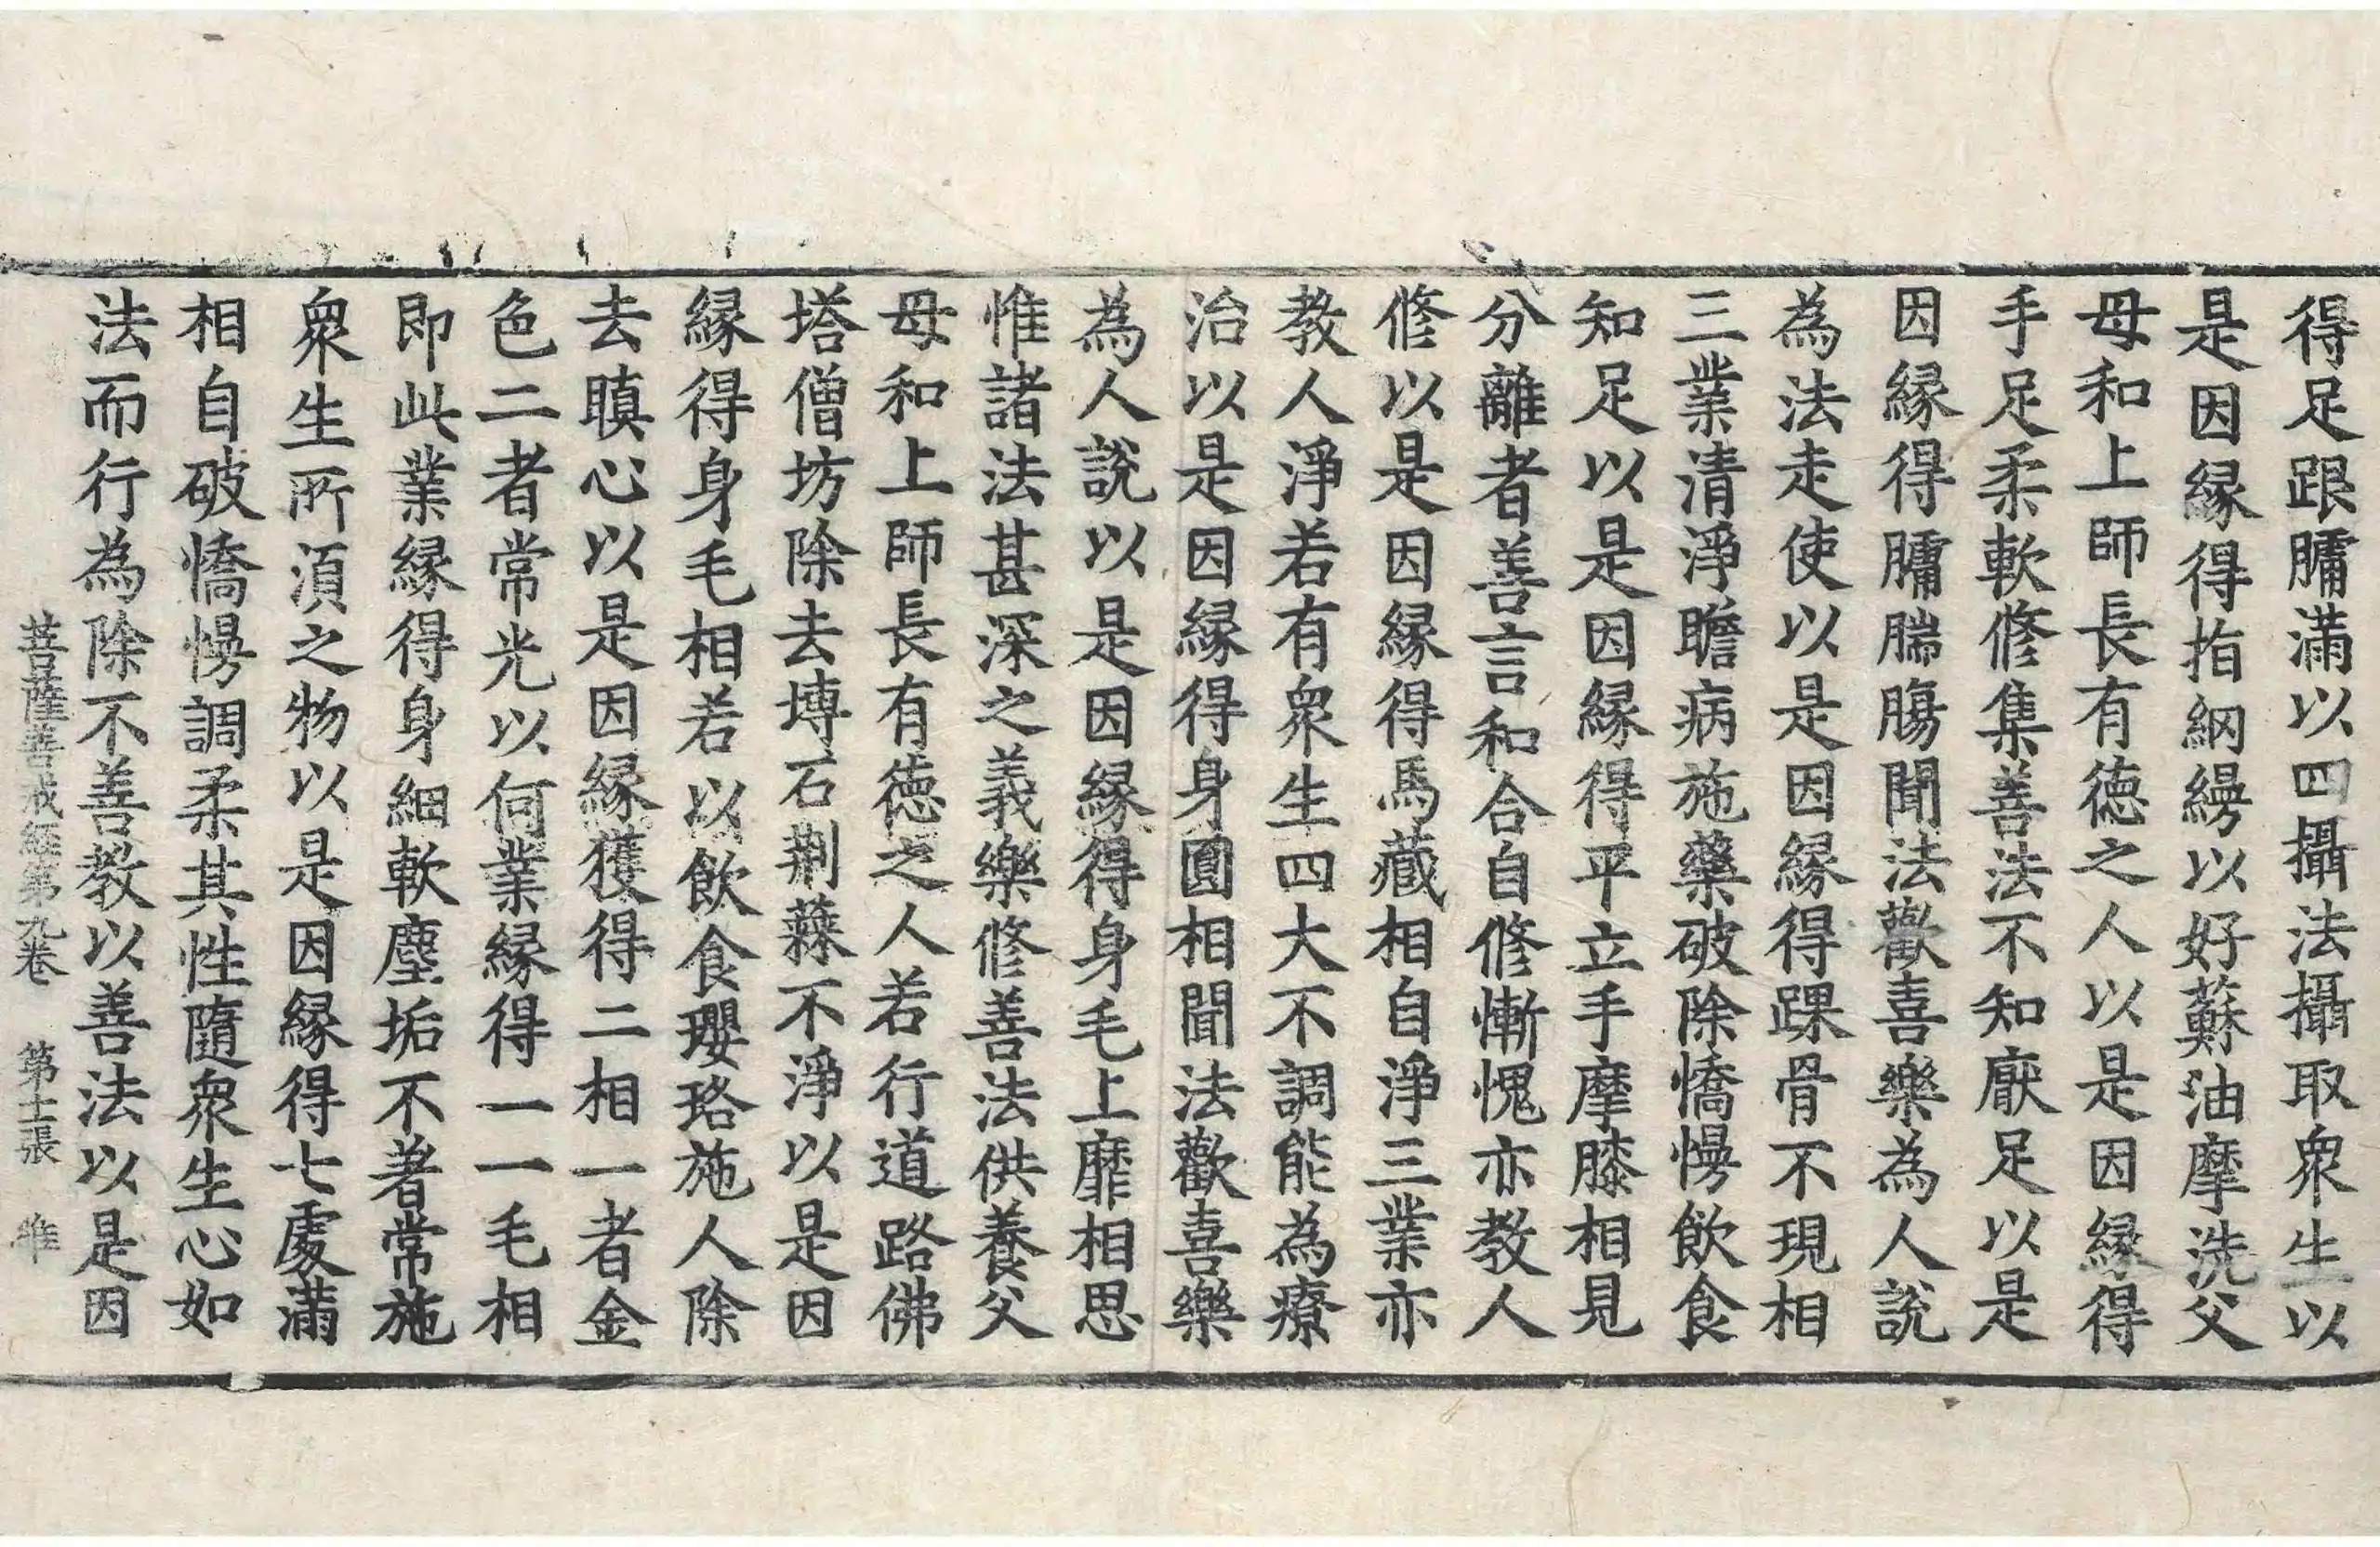 得足跟𦟛滿以四攝法攝取衆生以
是因縁得指網縵以好蘇油摩洗父
母和上師長有徳之人以是因縁得
手足柔軟修集善法不知厭足以是
因縁得𦟛腨膓聞法歡喜樂為人說
為法走使以是因縁得踝骨不現相
三業清淨瞻病施藥破除憍慢飲食
知足以是因縁得平立手摩膝相見
分離者善言和合自修慚愧亦教人
修以是因縁得馬藏相自淨三業亦
教人淨若有衆生四大不調能為療
治以是因縁得身圓相聞法歡喜樂
為人說以是因縁得身毛上靡相思
惟諸法甚深之義樂修善法供養父
母和上師長有徳之人若行道路佛
塔僧坊除去塼石荆蕀不淨以是因
縁得身毛相若以飲食瓔珞施人除
去瞋心以是因縁獲得二相一者金
色二者常光以何業縁得一一毛相
即此業縁得身細軟塵垢不著常施
衆生所湏之物以是因縁得七處滿
相自破憍慢調柔其性隨衆生心如
法而行為除不善教以善法以是因
菩薩善戒經第九卷 第十二張 惟